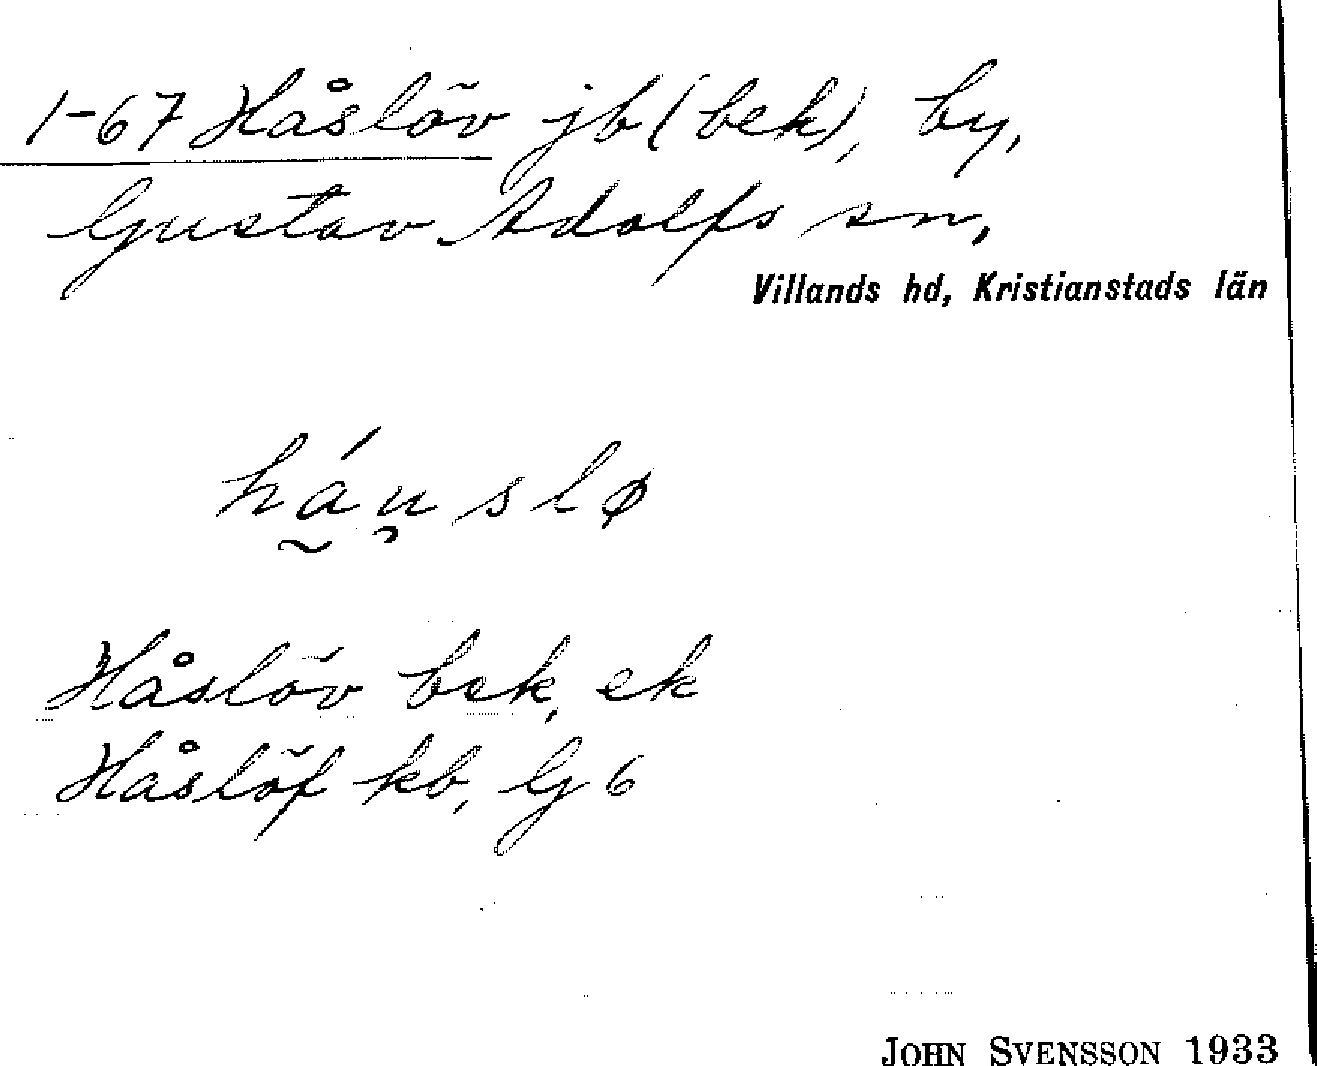 1-67 Håslöv jb (bek), by,
Gustav Adolfs sn,
Villands hd, Kristianstads län
há̰u̡slø
Håslöv bek, ek
Håslöf kb, G6
JOHN SVENSSON 1933